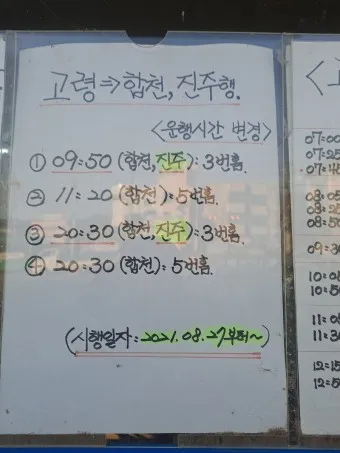 고령⇒합천, 진주행.
<운행시간 변경>
① 09:50 (합천, 진주): 3번홈.
② 11:20 (합천): 5번홈.
③ 20:30 (합천, 진주): 3번홈.
④ 20:30 (합천): 5번홈.
(시행일자: 2021.08.27부터~)
<고
07:00
07:25
08:50
09:30
10:50
11:30